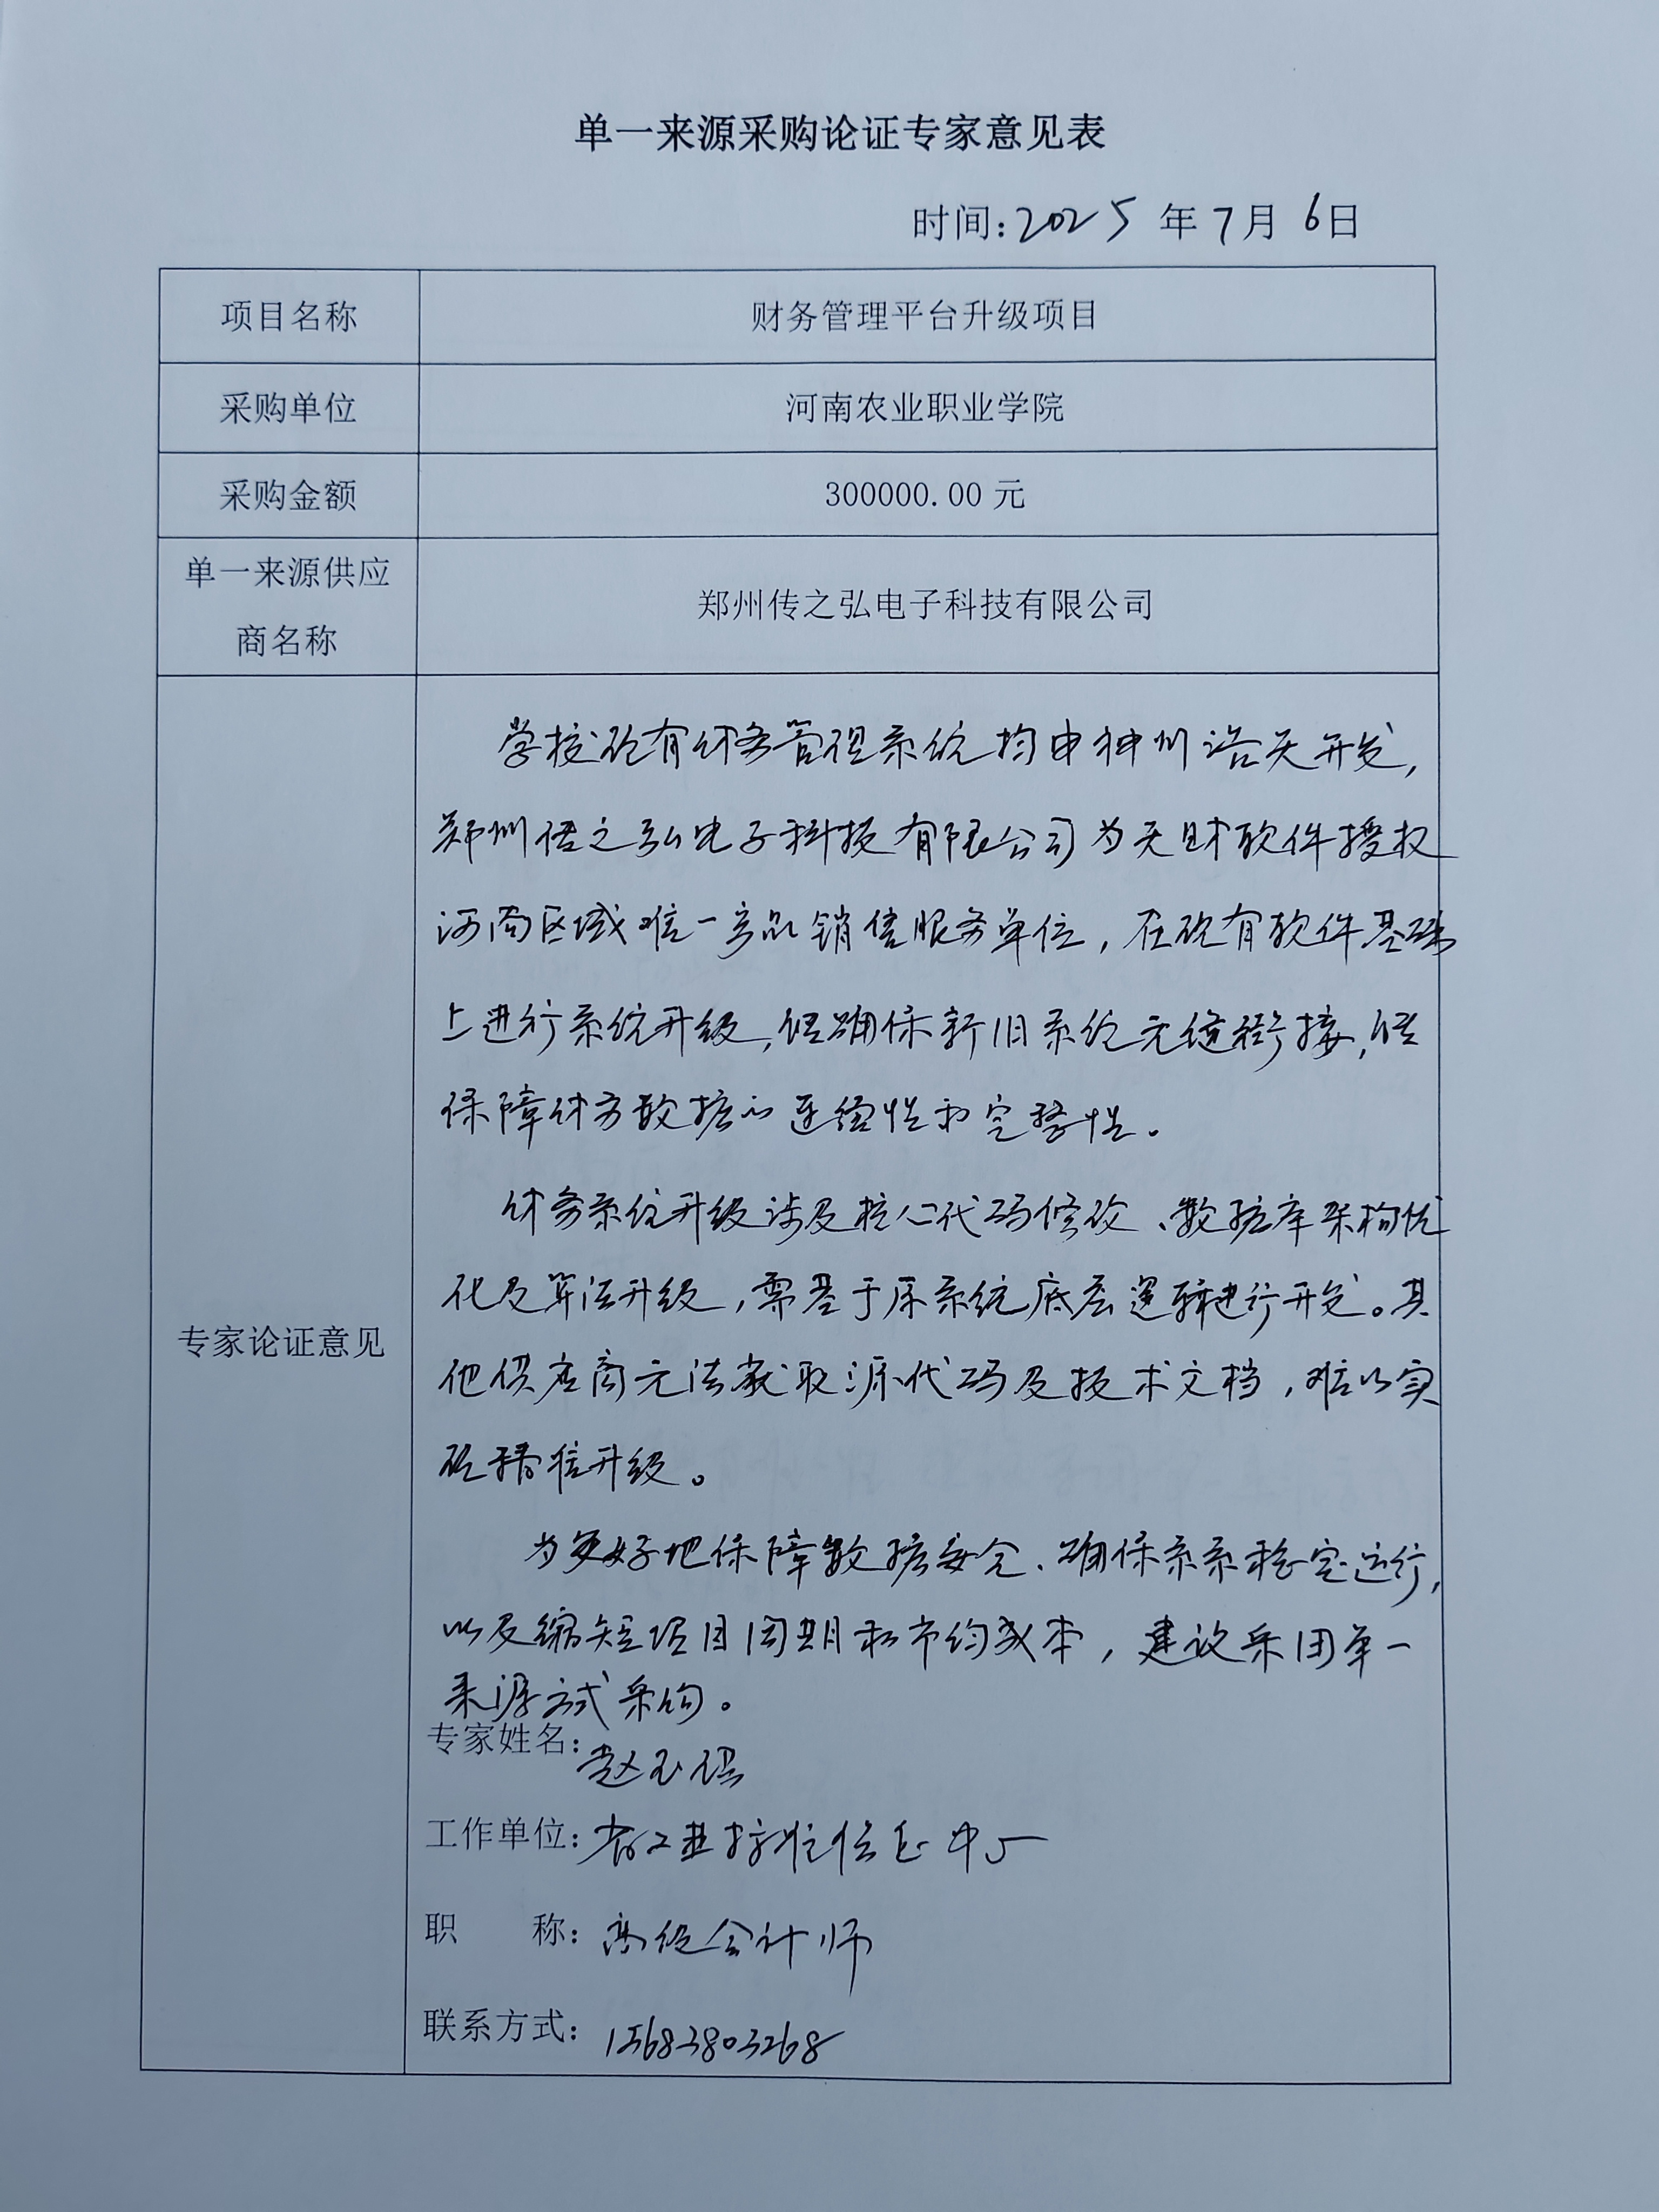 单一来源采购论证专家意见表
时间:2025 年 7月 6日
项目名称
财务管理平台升级项目
采购单位
河南农业职业学院
采购金额
300000.00 元
单一来源供应
商名称
郑州传之弘电子科技有限公司
专家论证意见
学校现有财务管理系统均由神州浩天开发,
郑州传之弘电子科技有限公司为天财软件授权
河南区域唯一产品销售服务单位,在现有软件基础
上进行系统升级,能确保新旧系统无缝衔接,能
保障财务数据的连续性和完整性。
财务系统升级涉及核心代码修改、数据库架构优
化及算法升级,需基于原系统底层逻辑进行开发。其
他供应商无法获取源代码及技术文档,难以实
现精准升级。
为更好地保障数据安全、确保系系稳定运行,
以及缩短项目周期和节约成本,建议采用单一
来源方式采购。
专家姓名:赵玉保
工作单位:省工业 信息中心
职 称:高级会计师
联系方式:15683803268